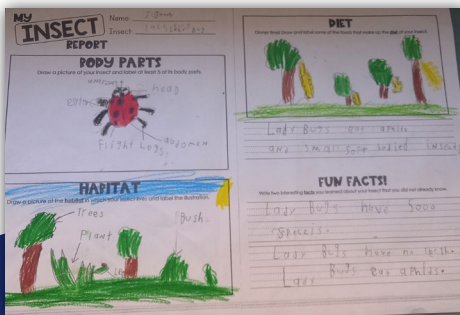 MY
INSECT
REPORT
Name
Insect
BODY PARTS
Draw a picture of your insect and label at least 5 of its body parts.
head
Legs,
HABITAT
Draw a picture of the habitat in which your insect lives and label the illustration.
Trees
Plant
Bush
DIET
Dinner time! Draw and label some of the foods that make up the diet of your insect.
Lady Bugs eat aphids
and small soft bodied
FUN FACTS!
Write two interesting facts you learned about your insect that you did not already know.
Lady Bugs have 5000
Lady Bugs have no
Lady Bugs eat aphids.